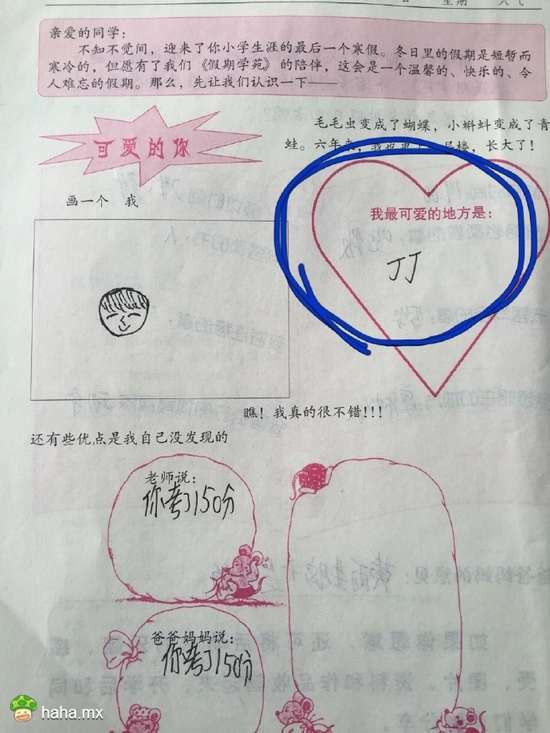 亲爱的同学：
不知不觉间，迎来了你小学生涯的最后一个寒假。冬日里的假期是短暂而
寒冷的，但愿有了我们《假期学苑》的陪伴，这会是一个温馨的、快乐的、令
人难忘的假期。那么，先让我们认识一下——
可爱的你
毛毛虫变成了蝴蝶，小蝌蚪变成了青
蛙。六年来，长大了！
画一个 我
我最可爱的地方是：
JJ
瞧！我真的很不错!!!
还有些优点是我自己没发现的
老师说：
你考了150分
爸爸妈妈说：
你考了150分
haha.mx